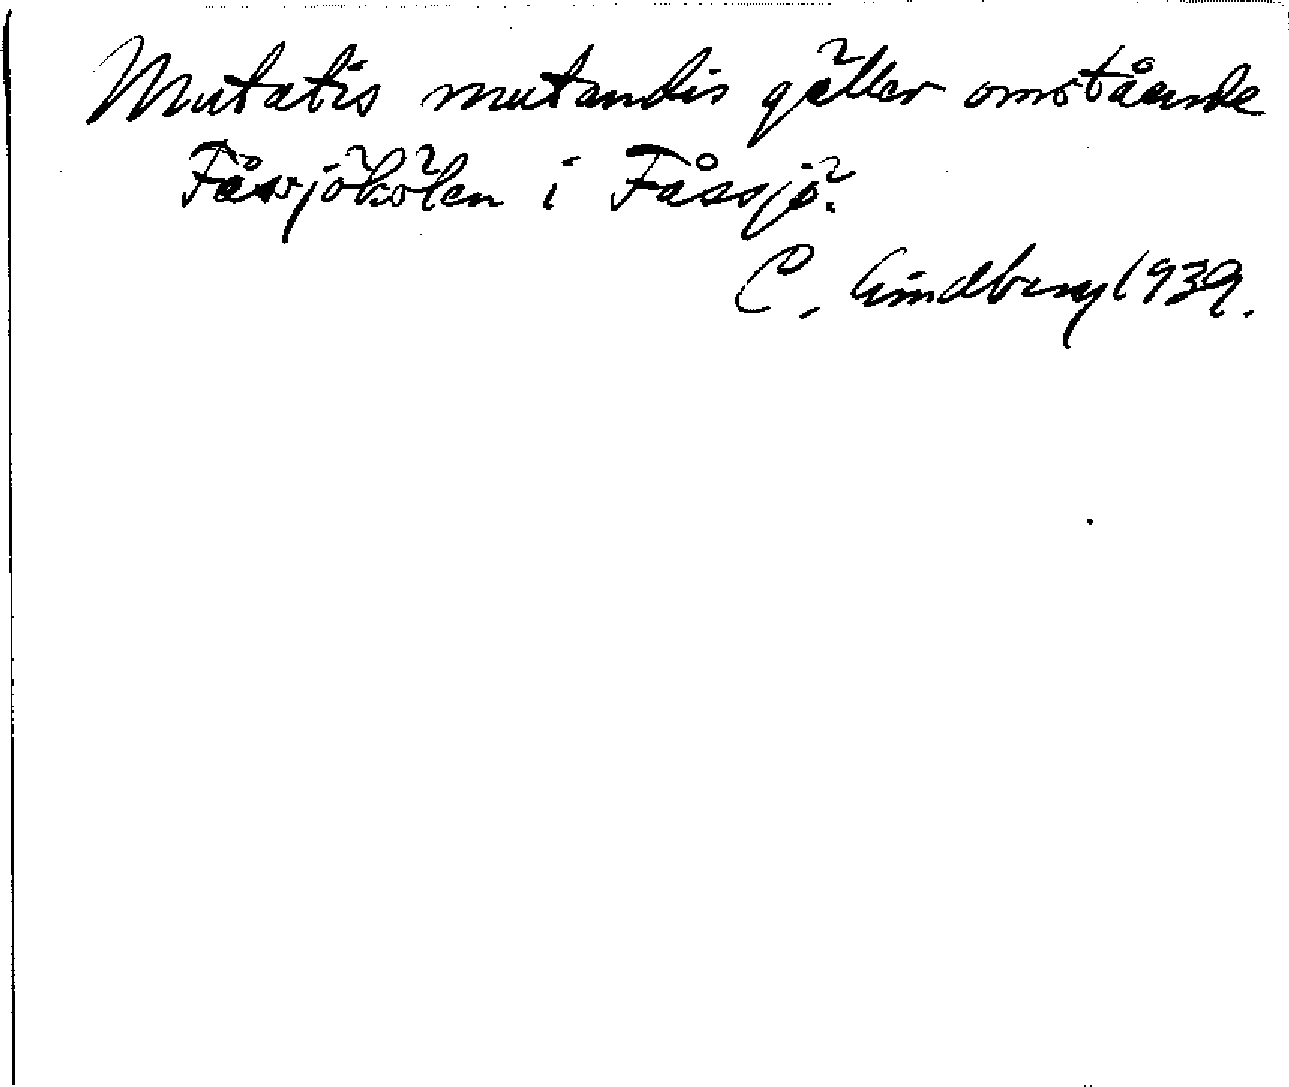 Mutatis mutandis gäller omstående
Fåssjökölen i Fåssjö.
C. Lindberg 1939.